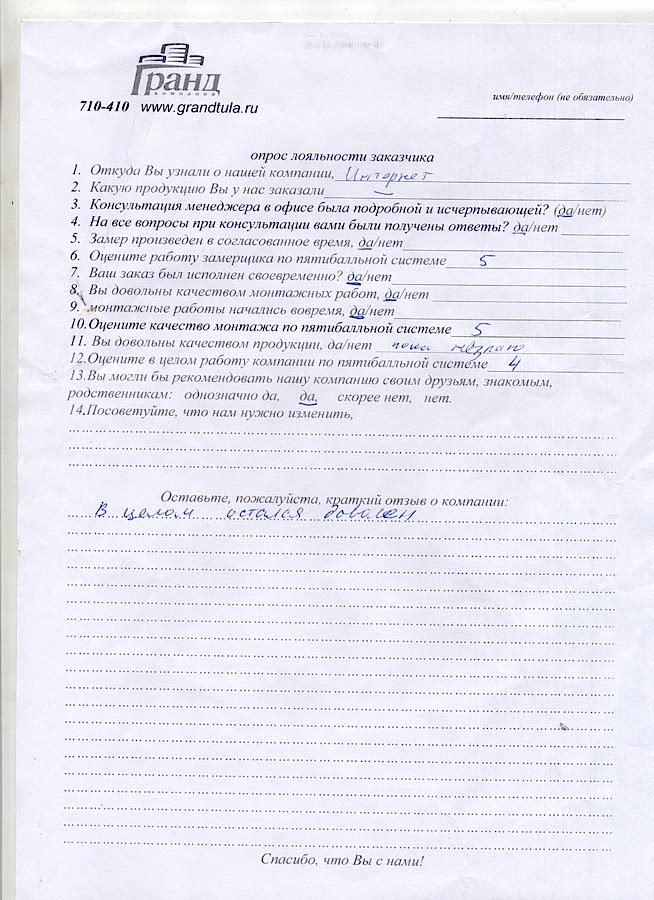 Гранд
компания
710-410 www.grandtula.ru
имя/телефон (не обязательно)
опрос лояльности заказчика
1. Откуда Вы узнали о нашей компании, Интернет
2. Какую продукцию Вы у нас заказали —
3. Консультация менеджера в офисе была подробной и исчерпывающей? (да/нет)
4. На все вопросы при консультации вами были получены ответы? да/нет
5. Замер произведен в согласованное время, да/нет
6. Оцените работу замерщика по пятибалльной системе 5
7. Ваш заказ был исполнен своевременно? да/нет
8. Вы довольны качеством монтажных работ, да/нет
9. монтажные работы начались вовремя, да/нет
10.Оцените качество монтажа по пятибалльной системе 5
11. Вы довольны качеством продукции, да/нет пока незнаю
12.Оцените в целом работу компании по пятибалльной системе 4
13.Вы могли бы рекомендовать нашу компанию своим друзьям, знакомым,
родственникам: однозначно да, да, скорее нет, нет.
14.Посоветуйте, что нам нужно изменить,
Оставьте, пожалуйста, краткий отзыв о компании:
В целом остался доволен
Спасибо, что Вы с нами!